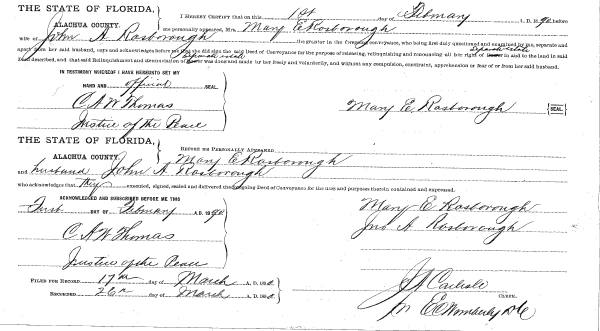 THE STATE OF FLORIDA,
ALACHUA COUNTY.
I HEREBY CERTIFY that on this 1st day of February A. D. 1890 before
me personally appeared, Mrs. Mary E Rosborough
wife of John A. Rosborough the grantor in the foregoing conveyance, who being first duly questioned and examined by me, separate and
apart from her said husband, says and acknowledges before me that she did sign the said Deed of Conveyance for the purpose of releasing, relinquishing and renouncing all her right of in and to the land in said
Deed described, and that said Relinquishment and Renunciation of was done and made by her freely and voluntarily, and without any compulsion, constraint, apprehension or fear of or from her said husband.
IN TESTIMONY WHEREOF I HAVE HEREUNTO SET MY
HAND AND official SEAL.
C. A W Thomas
Mary E. Rosborough SEAL
Justice of the Peace
THE STATE OF FLORIDA,
ALACHUA COUNTY.
BEFORE ME PERSONALLY APPEARED
Mary E Rosborough
and husband John A. Rosborough
who acknowledge that they executed, signed, sealed and delivered the foregoing Deed of Conveyance for the uses and purposes therein contained and expressed.
ACKNOWLEDGED AND SUBSCRIBED BEFORE ME THIS
First DAY OF February A. D. 1890
Mary E Rosborough
Jno A Rosborough
C A W Thomas
Justice of the Peace
FILED FOR RECORD 17th day of March A. D. 1890
RECORDED 26th day of March A. D. 1890
J A Carlisle
CLERK.
E C Wimberly D C